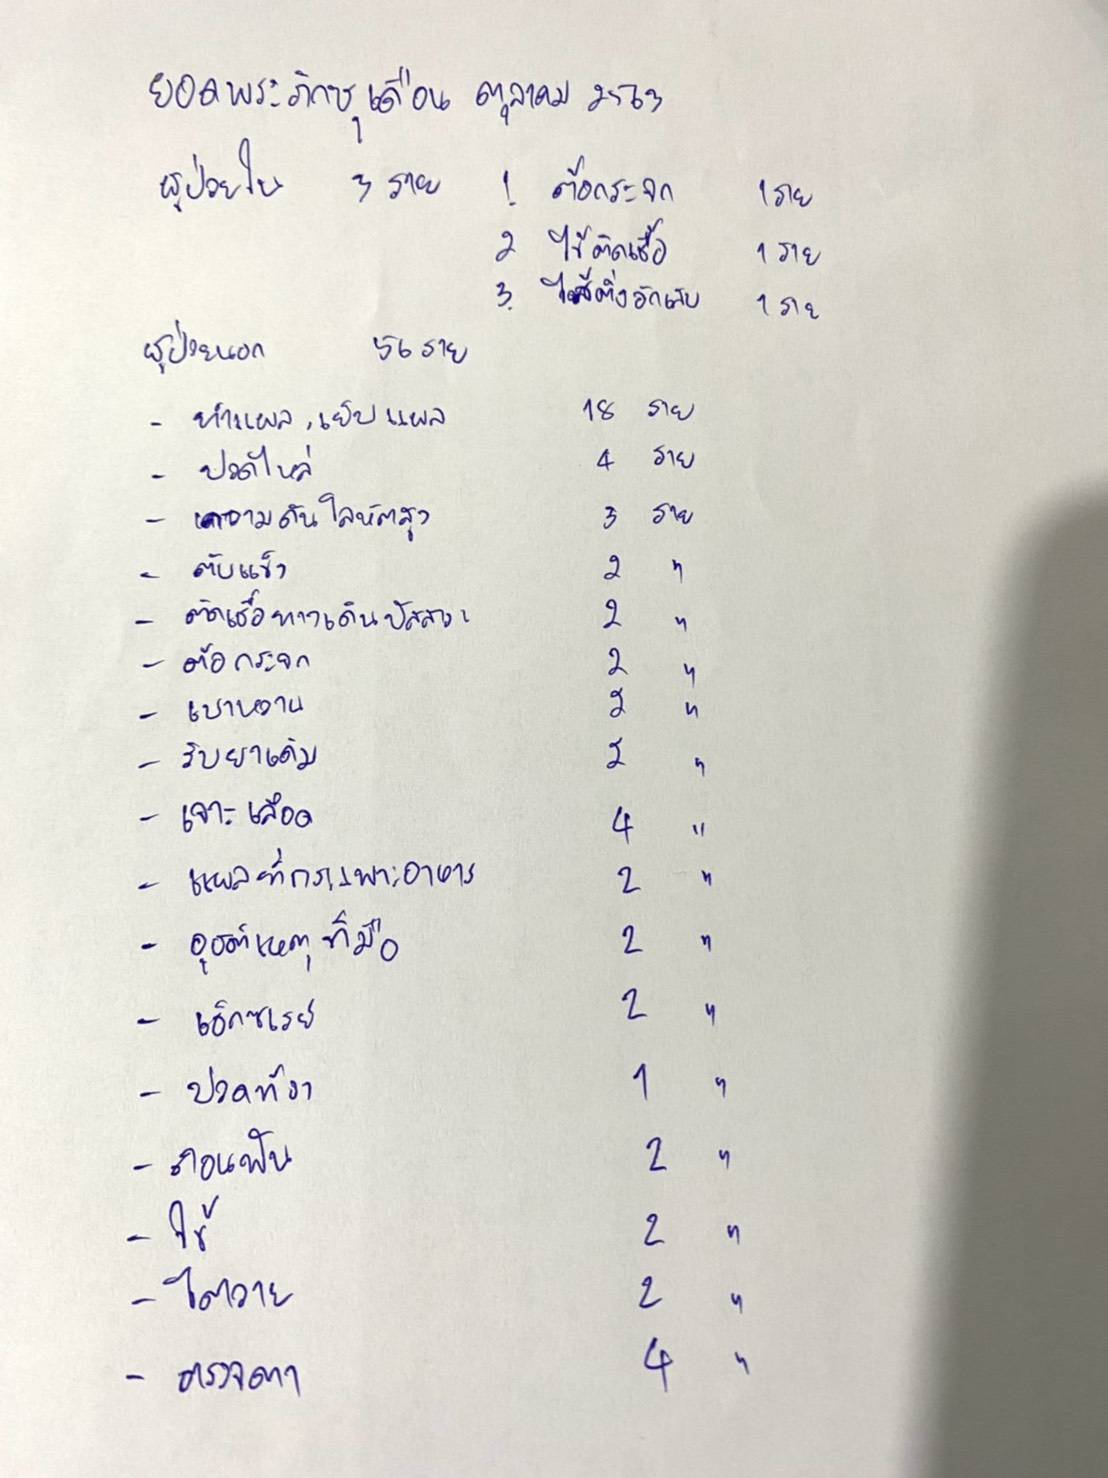 ยอดพระภิกษุเดือน ตุลาคม 2563
ผู้ป่วยใน 3 ราย 1. ต้อกระจก 1 ราย
2 ไข้ติดเชื้อ 1 ราย
3. ไส้ติ่งอักเสบ 1 ราย
ผู้ป่วยนอก 56 ราย
- ทำแผล, เย็บแผล 18 ราย
- ปวดไหล่ 4 ราย
- ความดันโลหิตสูง 3 ราย
- ตับแข็ง 2 "
- ติดเชื้อทางเดินปัสสาวะ 2 "
- ต้อกระจก 2 "
- เบาหวาน 2 "
- รับยาเดิม 2 "
- เจาะเลือด 4 "
- แผลที่กระเพาะอาหาร 2 "
- อุบัติเหตุที่มือ 2 "
- เอ็กซเรย์ 2 "
- ปวดท้อง 1 "
- ถอนฟัน 2 "
- ไข้ 2 "
- ไตวาย 2 "
- ตรวจตา 4 "